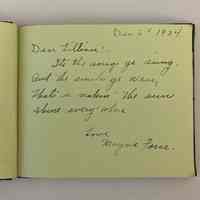 Dec 6th 1934
Dear Lillian:-
It's the songs ye sing,
And the smiles ye wear,
That's a makin' the sun
shine every where
Love